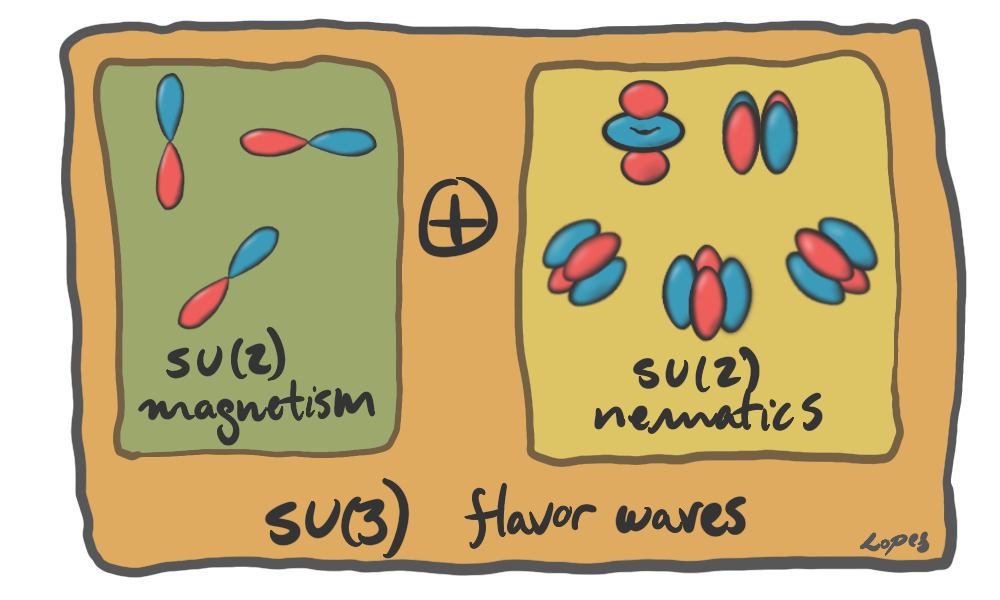 SU(2)
magnetism
SU(2)
nematics
SU(3) flavor waves
Lopes